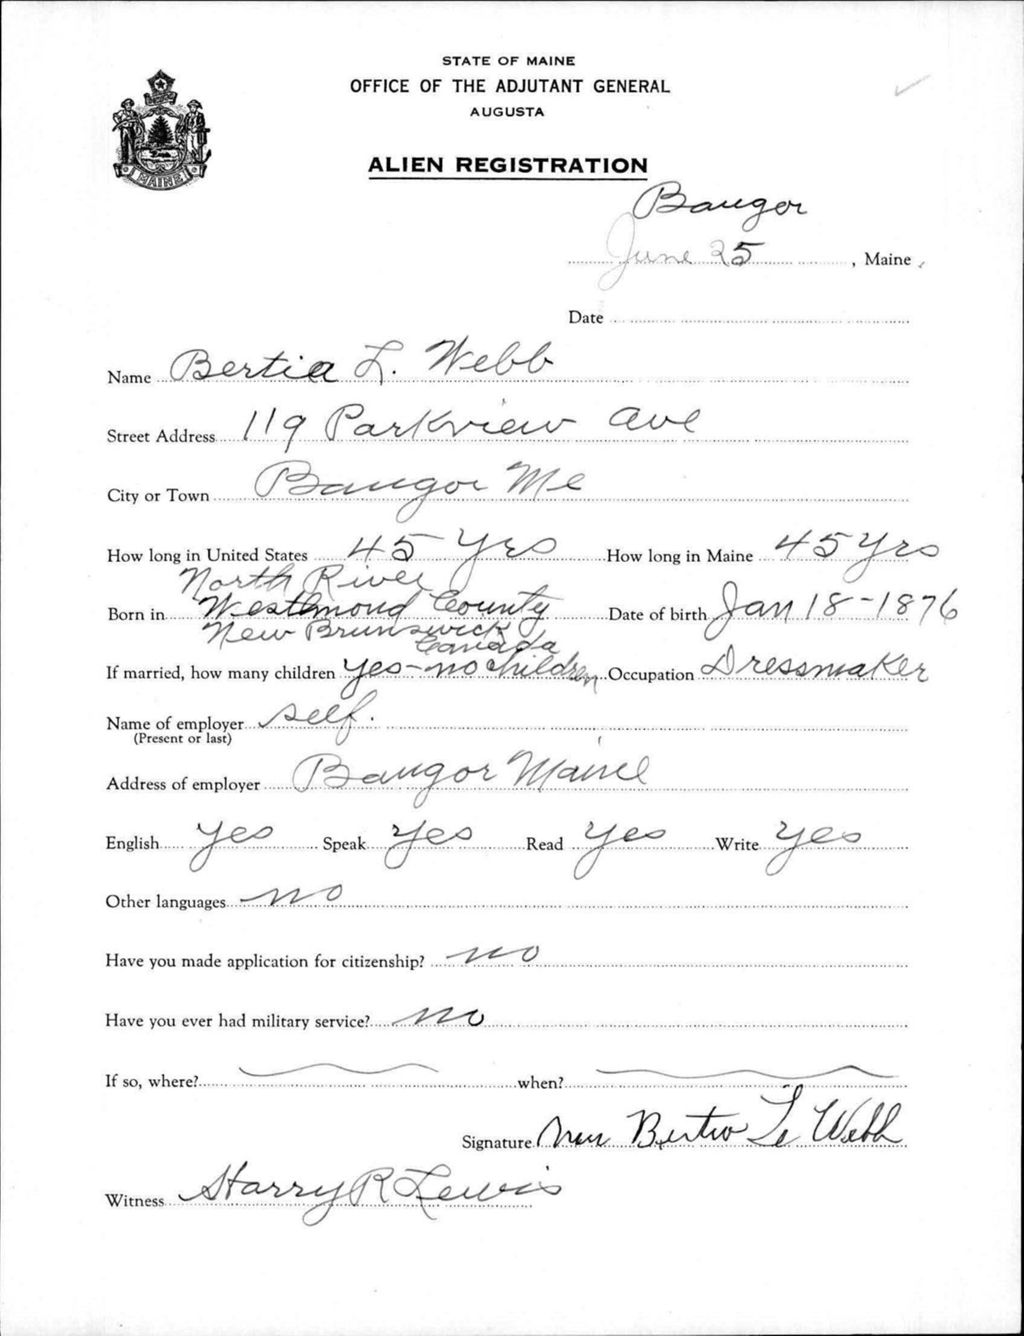 STATE OF MAINE
OFFICE OF THE ADJUTANT GENERAL
AUGUSTA
MAINE
ALIEN REGISTRATION
Bangor
June 25, Maine
Date
Name Bertia L. Webb
Street Address 119 Parkview Ave
City or Town Bangor Me
How long in United States 45 Yrs How long in Maine 45 Yrs
North River
Born in Westlmond County Date of birth Jan 18-1876
New Brunswick
Canada
If married, how many children Yes-no children Occupation Dressmaker
Name of employer self.
(Present or last)
Address of employer Bangor Maine
English yes Speak Yes Read Yes Write yes
Other languages no
Have you made application for citizenship? no
Have you ever had military service? no
If so, where? when?
Signature Bertia L Webb
Witness Harry R Lewis